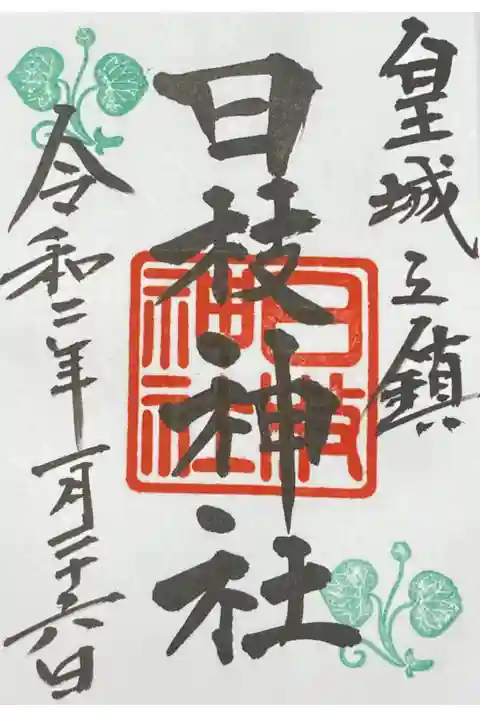 皇城之鎮
日枝神社
日枝神社
令和二年一月二十六日